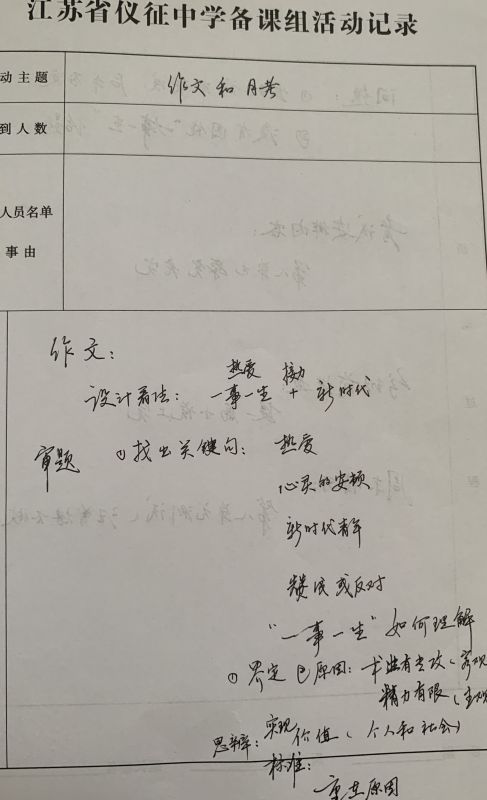 江苏省仪征中学备课组活动记录
动主题
作文和月考
到人数
人员名单
事由
作文：
热爱 接力
设计看法：一事一生 + 新时代
审题 ①找出关键句：热爱
心灵的安顿
新时代青年
赞成或反对
"一事一生"如何理解
①界定 ②原因：术业有专攻（客观
精力有限（主观
思辨：实现价值（个人和社会）
标准：
原因